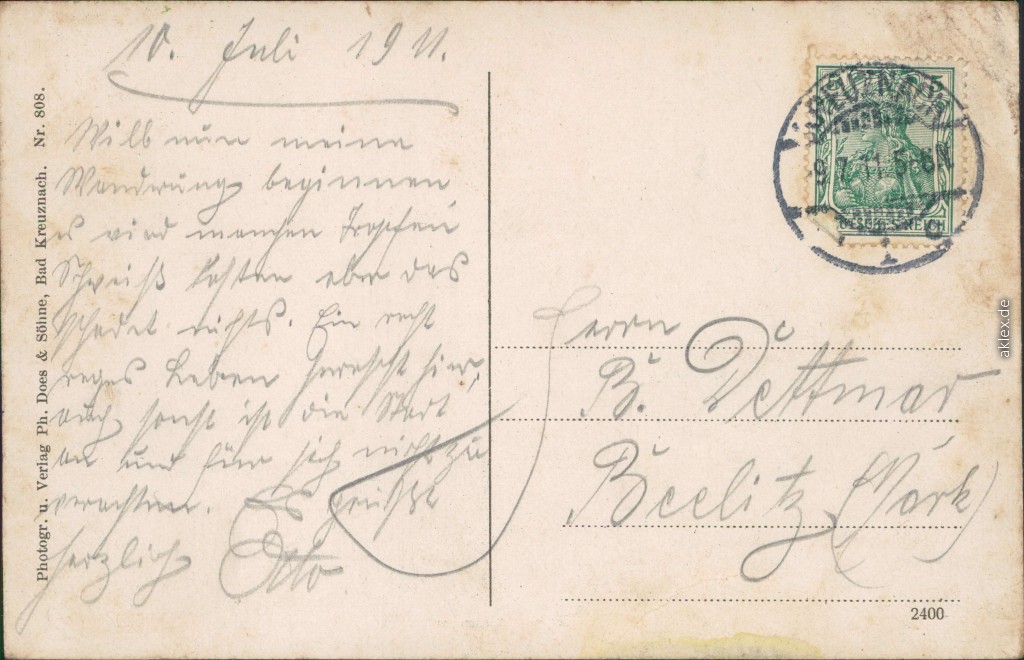 10. Juli 1911.
Will nun meine
Wandrung beginnen
u wird manchen Tropfen
Schweiß kosten aber das
schadet nichts. Ein recht
reges Leben herrscht hier,
auch sonst ist die Stadt
an und für sich nicht zu
verachten. Es grüßt
herzlich Otto
Photogr. u. Verlag Ph. Does & Söhne, Bad Kreuznach. Nr. 808.
KREUZNACH
9.7.11.5-6N.
Herrn
B. Dettmar
Beelitz (Mark)
2400
aklex.de